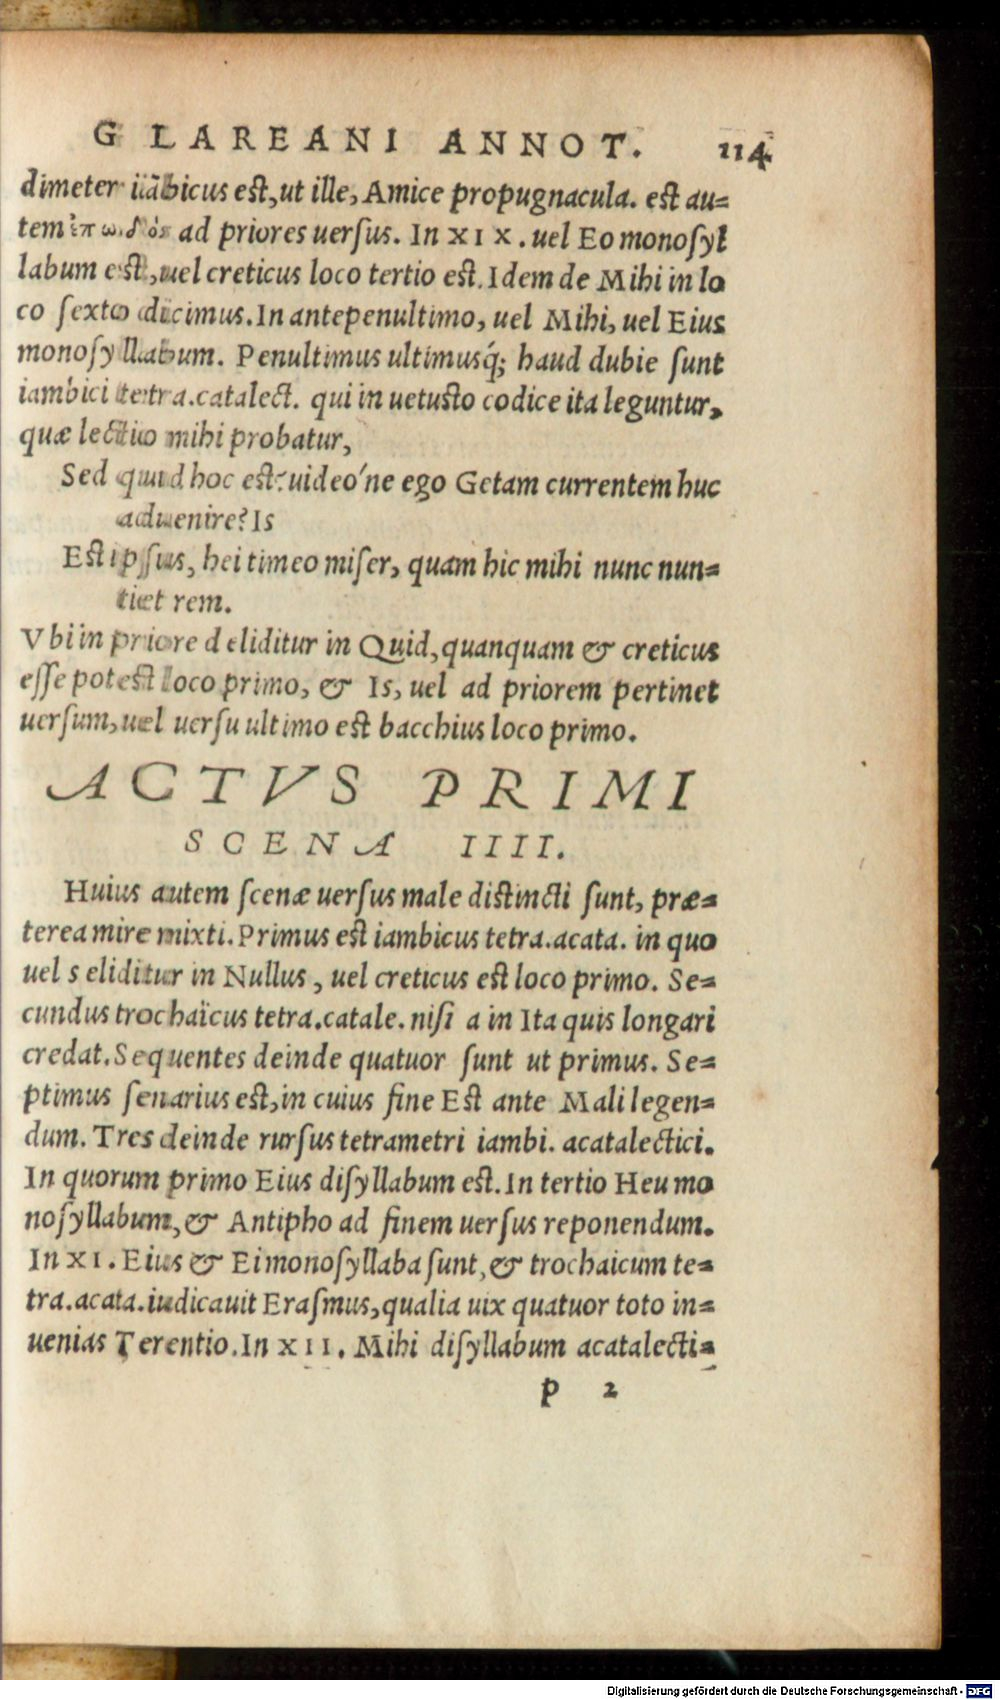 GLAREANI ANNOT. 114
dimeter iãbicus est, ut ille, Amice propugnacula. est au=
tem ἐπωδὸς ad priores uersus. In XIX. uel Eo monosyl
labum est, uel creticus loco tertio est. Idem de Mihi in lo
co sexto dicimus. In antepenultimo, uel Mihi, uel Eius
monosyllabum. Penultimus ultimusq́; haud dubie sunt
iambici tetra. catalect. qui in uetusto codice ita leguntur,
quæ lectio mihi probatur,
Sed quid hoc est? uideo'ne ego Getam currentem huc
aduenire? Is
Est ipsus, hei timeo miser, quam hic mihi nunc nun=
tiet rem.
Vbi in priore d eliditur in Quid, quanquam & creticus
esse potest loco primo, & Is, uel ad priorem pertinet
uersum, uel uersu ultimo est bacchius loco primo.
ACTVS PRIMI
SCENA IIII.
Huius autem scenæ uersus male distincti sunt, præ=
terea mire mixti. Primus est iambicus tetra. acata. in quo
uel s eliditur in Nullus, uel creticus est loco primo. Se=
cundus trochaicus tetra. catale. nisi a in Ita quis longari
credat. Sequentes deinde quatuor sunt ut primus. Se=
ptimus senarius est, in cuius fine Est ante Mali legen=
dum. Tres deinde rursus tetrametri iambi. acatalectici.
In quorum primo Eius disyllabum est. In tertio Heu mo
nosyllabum, & Antipho ad finem uersus reponendum.
In XI. Eius & Ei monosyllaba sunt, & trochaicum te=
tra. acata. iudicauit Erasmus, qualia uix quatuor toto in=
uenias Terentio. In XII. Mihi disyllabum acatalecti=
p 2
Digitalisierung gefördert durch die Deutsche Forschungsgemeinschaft - DFG